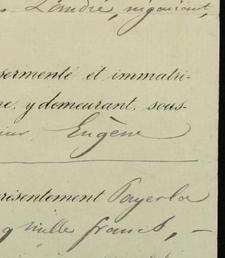 Landré, négociant,
sermenté et immatri-
re, y demeurant, sous-
ieur Eugène
résentement Payerla
q mille francs, –